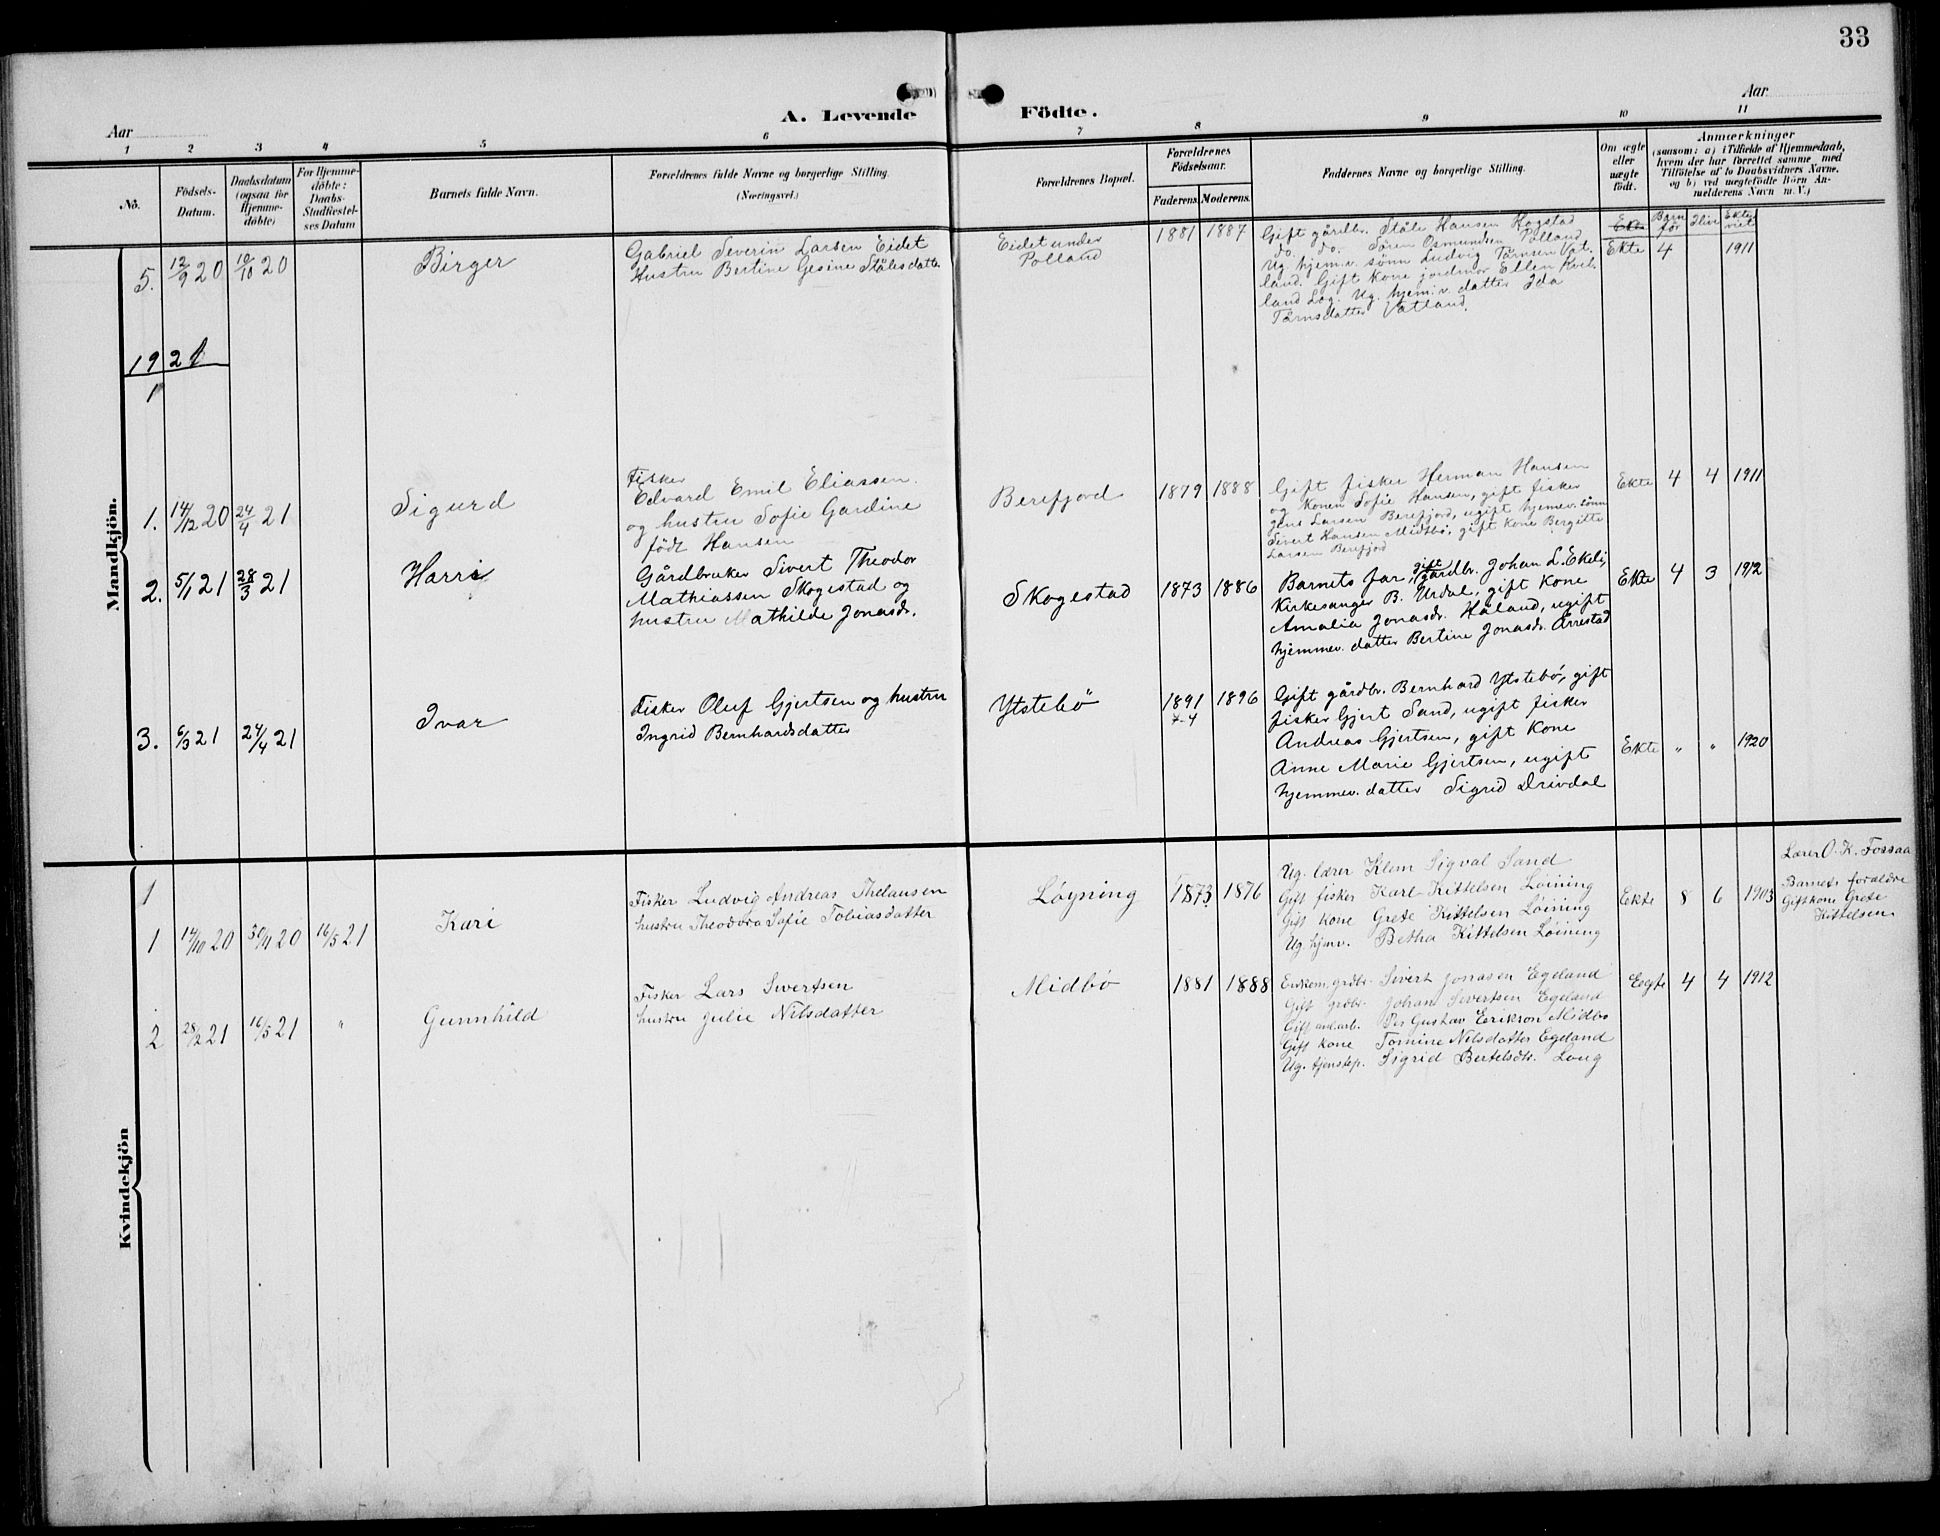 33
A. Levende Födte.
Aar
Aar
1 2 3 4 5 6 7 8 9 10 11
No.
Födsels-
Datum.
Daabsdatum
(ogsaa for
Hjemme-
döbte)
For Hjemme-
döbte:
Daabs-
Stadfæstel-
ses Datum
Barnets fulde Navn.
Forældrenes fulde Navne og borgerlige Stilling.
(Næringsvei.)
Forældrenes Bopæl.
Forældrenes
Födselsaar.
Faderens. Moderens.
Faddernes Navne og borgerlige Stilling.
Om ægte
eller
uægte
födt.
Anmærkninger
(saasom: a) i Tilfælde af Hjemmedaab,
hvem der har forrettet samme, med
Tilföielse af to Daabsvidners Navne,
og b) ved uægtefödte Börn An-
melderens Navn m. V.)
Ekte Barn før I live Ekte viet
Mandkjön.
5. 12/9 20 10/10 20
Birger
Gabriel Severin Larsen Eidet
Hustru Bertine Gesine Ståles datter
Eidet under
Polland
1881 1887
Gift gårdbr. Ståle Hansen Hogstad
do. do. Sören Osmundsen Polland
Ug. hjem.v. sönn Ludvig Tårnsen Vat.
land. Gift Kone jordmor Ellen Kvel.
land Log. Ug. hjem.v. datter Ida
Tårnsdatter Vatland.
Ekte 4 1911
1921
1
1. 14/12 20 24/4 21
Sigurd
Fisker
Edvard Emil Eliassen.
og hustru Sofie Gardine
födt Hansen
Berefjord
1879 1888
Gift fisker Herman Hansen
og Konen Sofie Hansen, gift fisker
Jens Larsen Berefjord, ugift hjemev. sönn
Sivert Hansen Midtbö, gift kone Bergitte
Larsen Berefjord
Ekte 4 4 1911
2. 5/1 21 28/3 21
Harri
Gårdbruker Sivert Theodor
Mathiassen Skogestad og
hustru Mathilde Jonasdr.
Skogestad
1873 1886
Barnets far, gift gårdbr. Johan L. Ekeli,
Kirkesanger B. Urdal, gift Kone
Amalia Jonasdr. Håland, ugift
hjemmev. datter Bertine Jonasdr. Årrestad
Ekte 4 3 1912
3. 6/3 21 24/4 21
Ivar
Fisker Oluf Gjertsen og hustru
Ingrid Bernhardsdatter
Ytstebö
1891 1896
Gift gårdbr. Bernhard Ytstebö, gift
fisker Gjert Sand, ugift fisker
Andreas Gjertsen, gift Kone
Anne Marie Gjertsen, ugift
hjemmev. datter Sigrid Drivdal
Ekte " " 1920
Kvindekjön
1
1 14/10 20 30/11 20 16/5 21
Kari
Fisker Ludvig Andreas Thelausen
hustru Theodora Sofie Tobiasdatter
Løyning
1873 1876
Ug. lærer Klem Sigval Sand
Gift fisker Karl Kittelsen Löining
Gift kone Grete Kittelsen Löining
Ug. hjmv. Betha Kittelsen Löining
Ekte 8 6 1903
Lærer O. K. Fossaa
Barnets foreldre
Gift kone Grete
Kittelsen
2 28/2 21 16/5 21 "
Gunnhild
Fisker Lars Sivertsen
hustru Julie Nilsdatter
Midbö
1881 1888
Enkem, grdbr. Sivert Jonasen Egeland
Gift grdbr. Johan Sivertsen Egeland
Gift Per Gustav Erikson Midbö
Gift kone Tomine Nilsdatter Egeland
Ug. tjenstep. Sigrid Bertelsdtr. Loug
Egte 4 4 1912